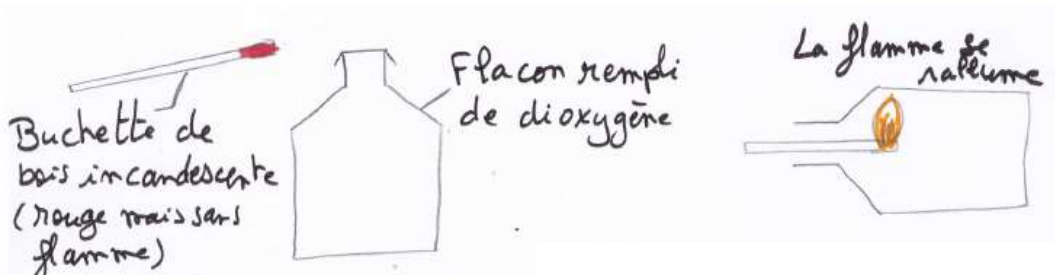 Buchette de
bois incandescente
(rouge mais sans
flamme)
Flacon rempli
de dioxygène
La flamme se
rallume